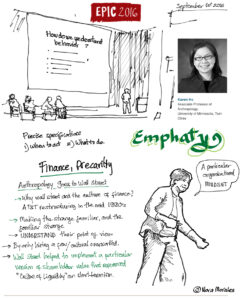 EPIC 2016
September 1st 2016
How do we understand
behavior?
Karen Ho
Associate Professor of
Anthropology,
University of Minnesota, Twin
Cities
Precise specifications
1) when to act 2) What to do.
Emphaty
Finance, Precarity
A particular
organizational
MINDSET
Anthropology Goes to Wall Street
Why wall street and the culture of finance?
AT&T restructuring in the mid 1990s
→ Making the strange familiar, and the
familiar strange
→ UNDERSTAND their point of view
→ Wall Street helped to implement a particular
version of shareholder value that
"Culture of Liquidity"
Nora Morales